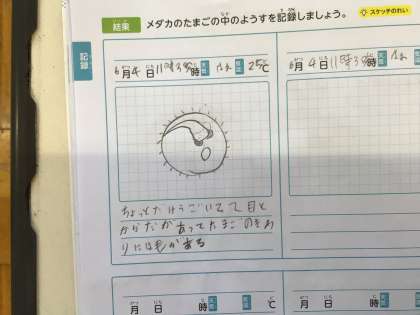 結果 メダカのたまごの中のようすを記録しましょう。 スケッチのれい
記録
6月4日11時35時 天気 はれ 25℃
6月4日11時35時 天気 はれ
ちょっとだけうごいてて目と
からだがあってたまごのまわ
りには毛がある
月 日 時 天気 ℃
月 日 時 天気